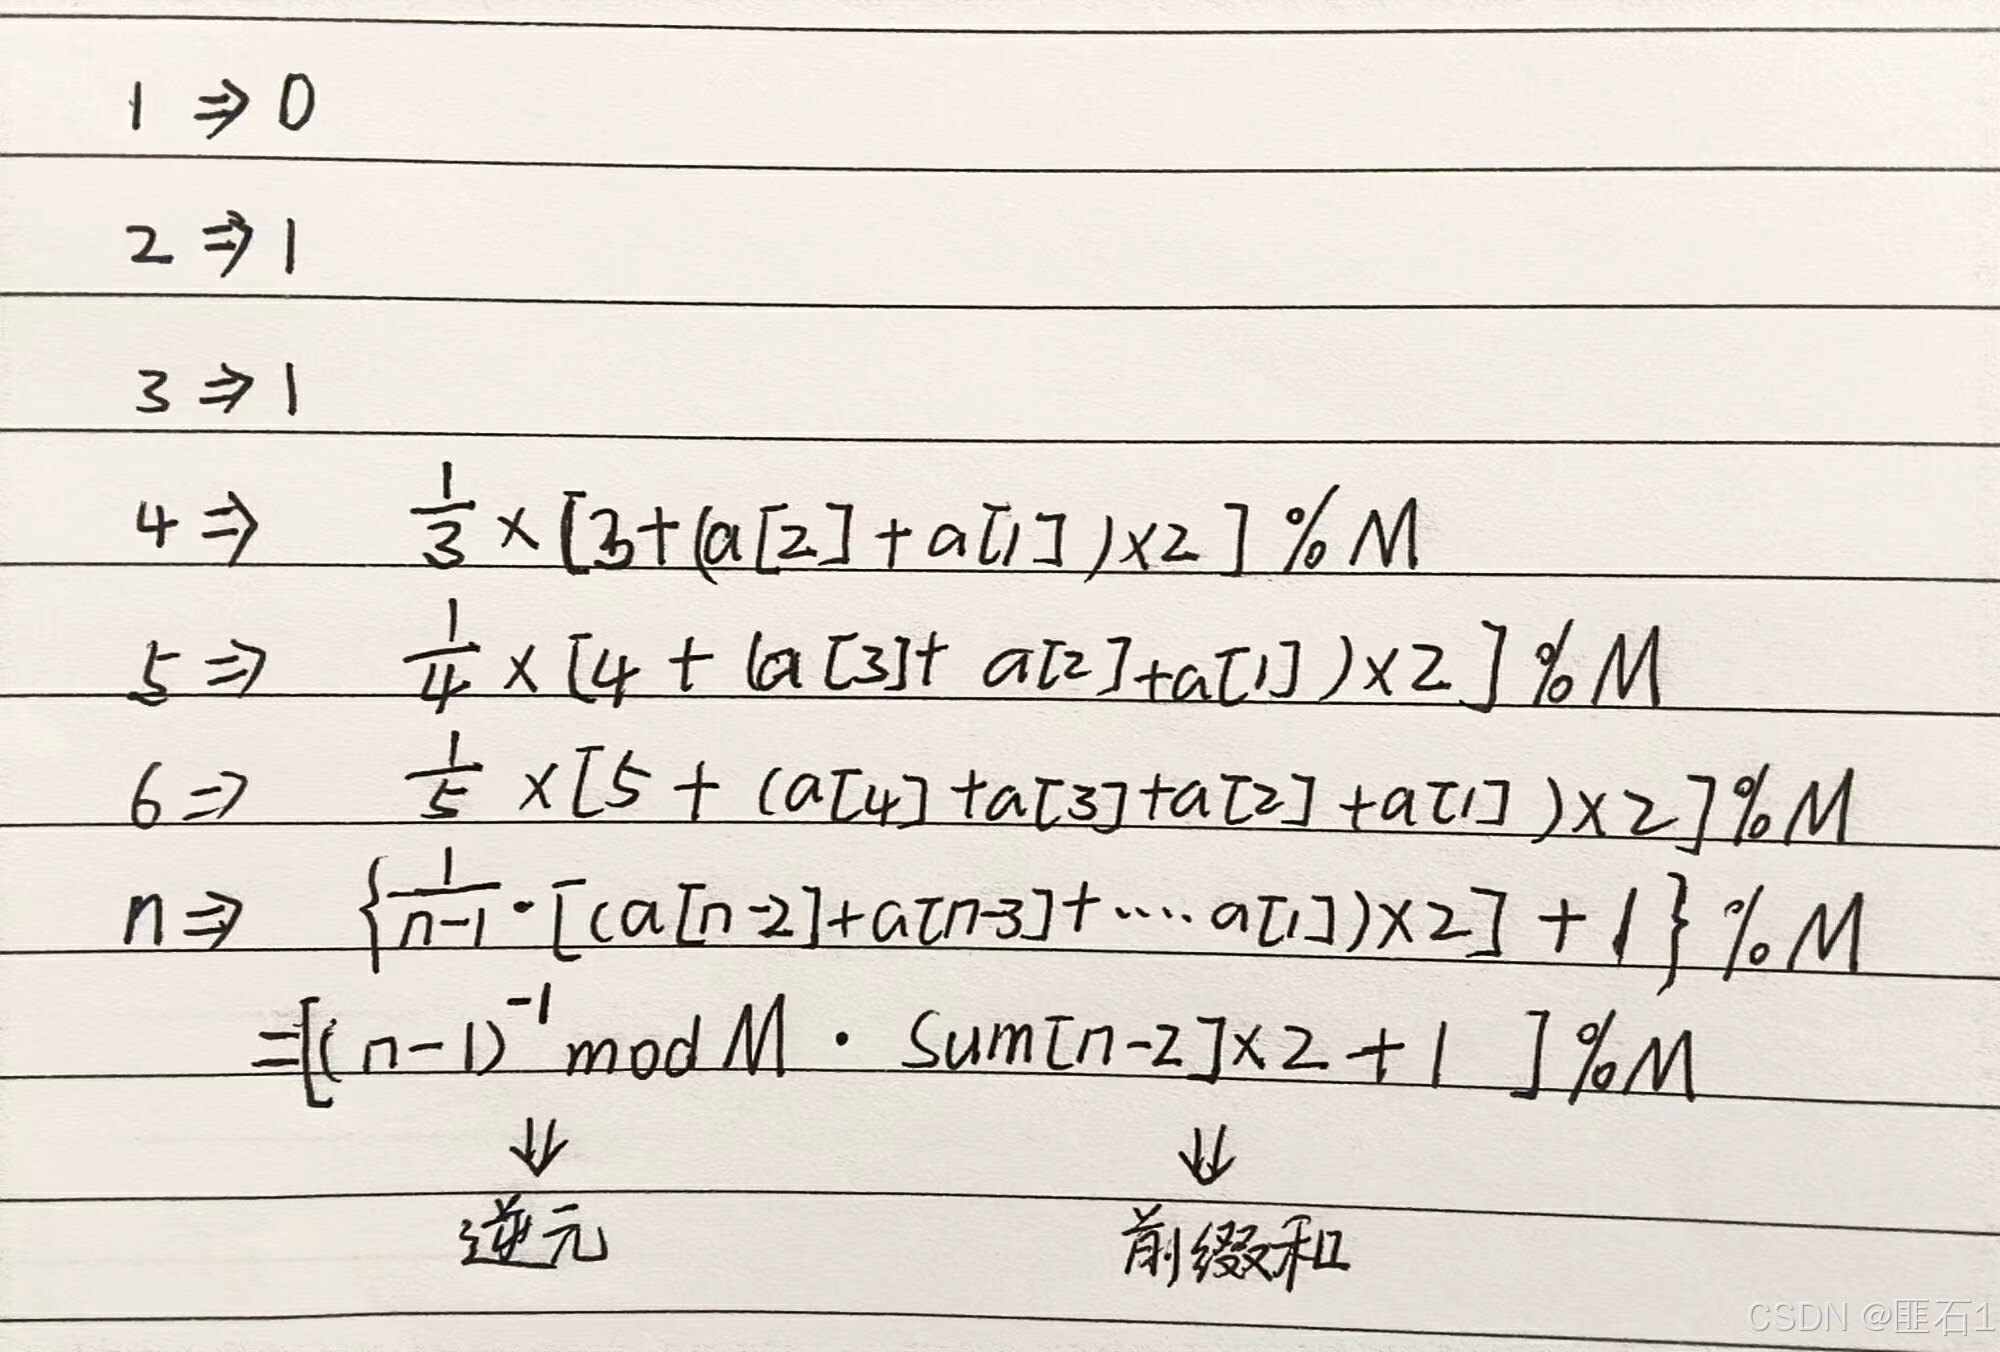 1 ⇒ 0
2 ⇒ 1
3 ⇒ 1
4 ⇒ 1/3 × [3+(a[2]+a[1])×2] % M
5 ⇒ 1/4 × [4+(a[3]+a[2]+a[1])×2] % M
6 ⇒ 1/5 × [5+(a[4]+a[3]+a[2]+a[1])×2] % M
n ⇒ {1/(n-1) · [(a[n-2]+a[n-3]+....a[1])×2]+1} % M
=[(n-1)⁻¹ mod M · Sum[n-2]×2+1] % M
⇓ ⇓
逆元 前缀和
CSDN @匪石1